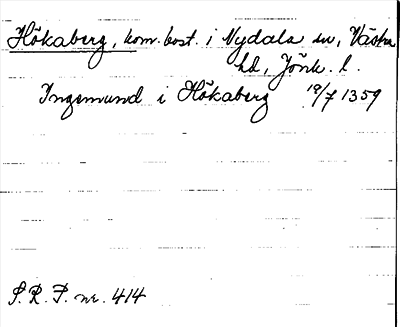 Hökaberg, kom. bost. i Nydala sn, Västra
hd, Jönk. l.
Ingemund i Hökaberg 19/7 1359
S. R. P. nr. 414